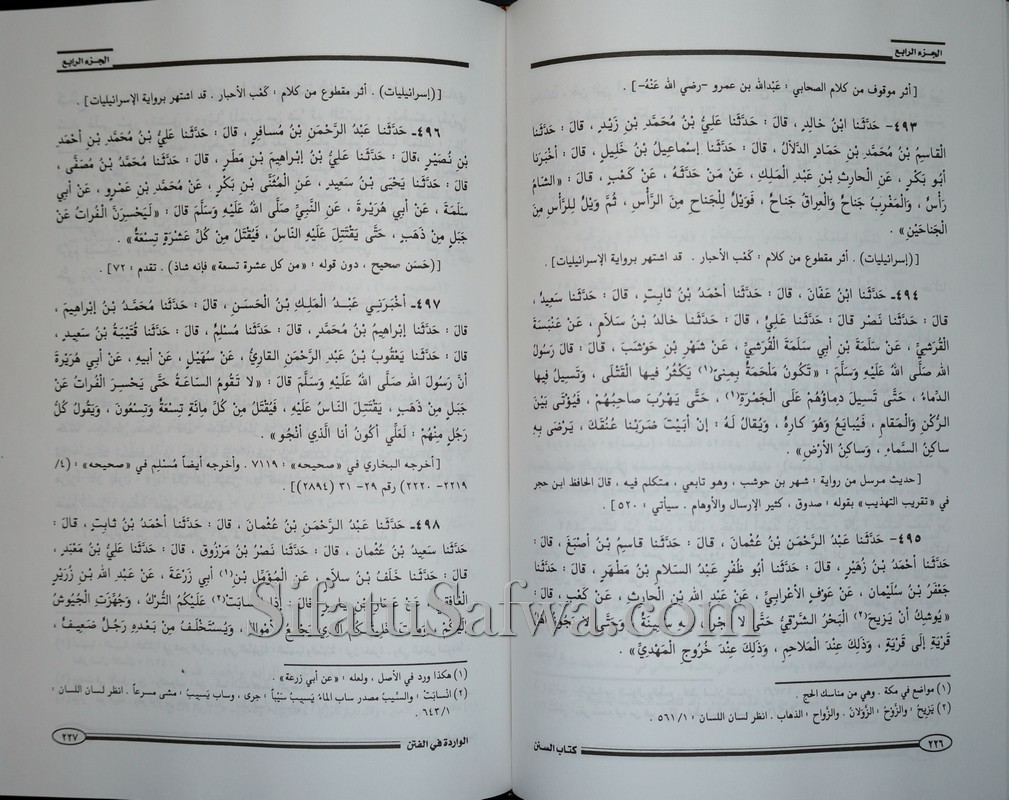 الجزء الرابع
[أثر موقوف من كلام الصحابي : عَبْدالله بن عمرو -رضي الله عَنْهُ-] .
٤٩٣- حَدَّثَنا ابْنُ خالِدٍ ، قالَ : حَدَّثَنا عَلِيُّ بْنُ مُحَمَّدِ بْنِ زَيْدٍ ، قالَ : حَدَّثَنا
الْقاسِمُ بْنُ مُحَمَّدِ بْنِ حَمّادٍ الدَّلاّلُ ، قالَ : حَدَّثَنا إسْماعِيلُ بْنُ خَلِيلٍ ، قالَ : أخْبَرَنا
أبُو بَكْرٍ ، عَنِ الْحارِثِ بْنِ عَبْدِ الْمَلِكِ ، عَنْ مَنْ حَدَّثَهُ ، عَنْ كَعْبٍ ، قالَ : «الشّامُ
رَأْسٌ ، وَالْمَغْرِبُ جَناحٌ وَالْعِراقُ جَناحٌ ، فَوَيْلٌ لِلْجَناحِ مِنَ الرَّأْسِ ، ثُمَّ وَيْلٌ لِلرَّأْسِ مِنَ
الْجَناحَيْنِ» .
[(إسرائيليات) . أثر مقطوع من كلام : كَعْب الأحبار . قد اشتهر برواية الإسرائيليات] .
٤٩٤- حَدَّثَنا ابْنُ عَفّانَ ، قالَ : حَدَّثَنا أحْمَدُ بْنُ ثابِتٍ ، قالَ : حَدَّثَنا سَعِيدٌ ،
قالَ : حَدَّثَنا نَصْرٌ قالَ : حَدَّثَنا عَلِيٌّ ، قالَ : حَدَّثَنا خالِدُ بْنُ سَلاَّمٍ ، عَنْ عَنْبَسَةَ
الْقُرَشِيِّ ، عَنْ سَلَمَةَ بْنِ أبي سَلَمَةَ الْقُرَشِيِّ ، عَنْ شَهْرِ بْنِ حَوْشَبَ ، قالَ : قالَ رَسُولُ
الله صَلَّى اللهُ عَلَيْهِ وَسَلَّمَ : «تَكُونُ مَلْحَمَةٌ بِمِنىً(١) يَكْثُرُ فيها الْقَتْلَى ، وَتَسِيلُ فِيها
الدِّماءُ ، حَتَّى تَسِيلَ دِماؤُهُمْ عَلَى الْجَمْرَةِ(١) ، حَتَّى يَهْرُبَ صاحِبُهُمْ ، فَيُؤْتى بَيْنَ
الرُّكْنِ وَالْمَقامِ ، فَيُبايَعُ وَهُوَ كارِهٌ ، وَيُقالُ لَهُ : إنْ أبَيْتَ ضَرَبْنا عُنُقَكَ ، يَرْضَى بِهِ
ساكِنُ السَّماءِ ، وَساكِنُ الأرْضِ» .
[حديث مرسل من رواية : شهر بن حوشب ، وهو تابعي ، متكلم فيه ، قالَ الحافظ ابن حجر
في «تقريب التهذيب» بقوله : صدوق ، كثير الإرسال والأوهام . سيأتي : ٥٢٠] .
٤٩٥- حَدَّثَنا عَبْدُ الرَّحْمَنِ بْنُ عُثْمانَ ، قالَ : حَدَّثَنا قاسِمُ بْنُ أصْبَغَ ، قالَ :
حَدَّثَنا أحْمَدُ بْنُ زُهَيْرٍ ، قالَ : حَدَّثَنا أبُو ظَفْرٍ عَبْدُ السَّلامِ بْنُ مَطْهَرٍ ، قالَ : حَدَّثَنا
جَعْفَرُ بْنُ سُلَيْمانَ ، عَنْ عَوْفٍ الأعْرابِيِّ ، عَنْ عَبْدِ الله بْنِ الْحارِثِ ، عَنْ كَعْبٍ ، قالَ :
«يُوشِكُ أنْ يَزِيحَ(٢) الْبَحْرُ الشَّرْقِيُّ حَتَّى لا يَجْرِيَ فِيهِ سَفِينَةٌ ، وَحَتَّى لا يَجُوزَ أهْلُ
قَرْيَةٍ إلى قَرْيَةٍ ، وَذَلِكَ عِنْدَ الْمَلاحِمِ ، وَذَلِكَ عِنْدَ خُرُوجِ الْمَهْدِيِّ» .
(١) مواضع في مكة . وهي من مناسك الحج .
(٢) يَزِيحُ : والزَّوْحُ : الزَّوَلانُ . والزَّواح : الذهاب . انظر لسان اللسان : ٥٦١/١ .
كتاب السنن
٢٢٦
الجزء الرابع
[(إسرائيليات) . أثر مقطوع من كلام : كَعْب الأحبار . قد اشتهر برواية الإسرائيليات] .
٤٩٦- حَدَّثَنا عَبْدُ الرَّحْمَنِ بْنُ مُسافِرٍ ، قالَ : حَدَّثَنا عَلِيُّ بْنُ مُحَمَّدِ بْنِ أحْمَدَ
بْنِ نُصَيْرٍ ،قالَ : حَدَّثَنا عَلِيُّ بْنُ إبْراهِيمَ بْنِ مَطَرٍ ، قالَ : حَدَّثَنا مُحَمَّدُ بْنُ مُصَفَّى ،
قالَ : حَدَّثَنا يَحْيَى بْنُ سَعِيدٍ ، عَنِ الْمُثَنَّى بْنِ بَكْرٍ ، عَنْ مُحَمَّدِ بْنِ عَمْرٍو ، عَنْ أبي
سَلَمَةَ ، عَنْ أبي هُرَيْرَةَ ، عَنِ النَّبِيِّ صَلَّى اللهُ عَلَيْهِ وَسَلَّمَ قالَ : «لَيَحْسِرَنَّ الْفُراتُ عَنْ
جَبَلٍ مِنْ ذَهَبٍ ، حَتَّى يَقْتَتِلَ عَلَيْهِ النّاسُ ، فَيُقْتَلُ مِنْ كُلِّ عَشْرَةٍ تِسْعَةٌ» .
[(حَسَن صحيح ، دون قوله : «من كل عشرة تسعة» فإنه شاذ) . تقدم : ٧٢] .
٤٩٧- أخْبَرَنِي عَبْدُ الْمَلِكِ بْنُ الْحَسَنِ ، قالَ : حَدَّثَنا مُحَمَّدُ بْنُ إبْراهِيمَ ،
قالَ : حَدَّثَنا إبْراهِيمُ بْنُ مُحَمَّدٍ ، قالَ : حَدَّثَنا مُسْلِمٌ ، قالَ : حَدَّثَنا قُتَيْبَةُ بْنُ سَعِيدٍ ،
قالَ : حَدَّثَنا يَعْقُوبُ بْنُ عَبْدِ الرَّحْمَنِ القارِئُ ، عَنْ سُهَيْلٍ ، عَنْ أبيهِ ، عَنْ أبي هُرَيْرَةَ
أنَّ رَسُولَ الله صَلَّى اللهُ عَلَيْهِ وَسَلَّمَ قالَ : «لا تَقُومُ السّاعَةُ حَتَّى يَحْسِرَ الْفُراتُ عَنْ
جَبَلٍ مِنْ ذَهَبٍ ، يَقْتَتِلُ النّاسُ عَلَيْهِ ، فَيُقْتَلُ مِنْ كُلِّ مِائَةٍ تِسْعَةٌ وَتِسْعُونَ ، وَيَقُولُ كُلُّ
رَجُلٍ مِنْهُمْ : لَعَلِّي أكُونُ أنا الَّذِي أنْجُو» .
[أخرجه البخاري في «صحيحه» : ٧١١٩ . وأخرجه أيضاً مُسْلِم في «صحيحه» : (٤/
٢٢١٩- ٢٢٢٠) رقم ٢٩- ٣١ (٢٨٩٤)] .
٤٩٨- حَدَّثَنا عَبْدُ الرَّحْمَنِ بْنُ عُثْمانَ ، قالَ : حَدَّثَنا أحْمَدُ بْنُ ثابِتٍ ، قالَ :
حَدَّثَنا سَعِيدُ بْنُ عُثْمان ، قالَ : حَدَّثَنا نَصْرُ بْنُ مَرْزُوقٍ ، قالَ : حَدَّثَنا عَلِيُّ بْنُ مَعْبَدٍ ،
قالَ : حَدَّثَنا خَلَفُ بْنُ سلامٍ ، عَنِ الْمُؤَمَّلِ بْنِ(١) أبي زَرْعَةَ ، عَنْ عَبْدِ الله بْنِ زُرَيْرٍ
الْغافِقِيِّ ، عَنْ عَمّارِ بْنِ ياسِرٍ ، قالَ : إذا انْسابَتْ(٢) عَلَيْكُمُ التُّرْكُ ، وَجُهِّزَتِ الْجُيُوشُ
إلَيْكُمْ ، وَماتَ خَلِيفَتُكُمُ الَّذِي يَجْمَعُ الأمْوالَ ، وَيُسْتَخْلَفُ مِنْ بَعْدِهِ رَجُلٌ ضَعِيفٌ ،
(١) هكذا ورد في الأصل ، ولعله : «عن أبي زرعة» .
(٢) انْسابَتْ : والسَّيْبُ مصدر ساب الماءُ يَسِيبُ سَيْباً : جرى ، وساب يَسِيبُ : مشى مسرعاً . انظر لسان اللسان :
٦٤٣/١ .
الواردة في الفتن
٢٢٧
SifatuSafwa.com